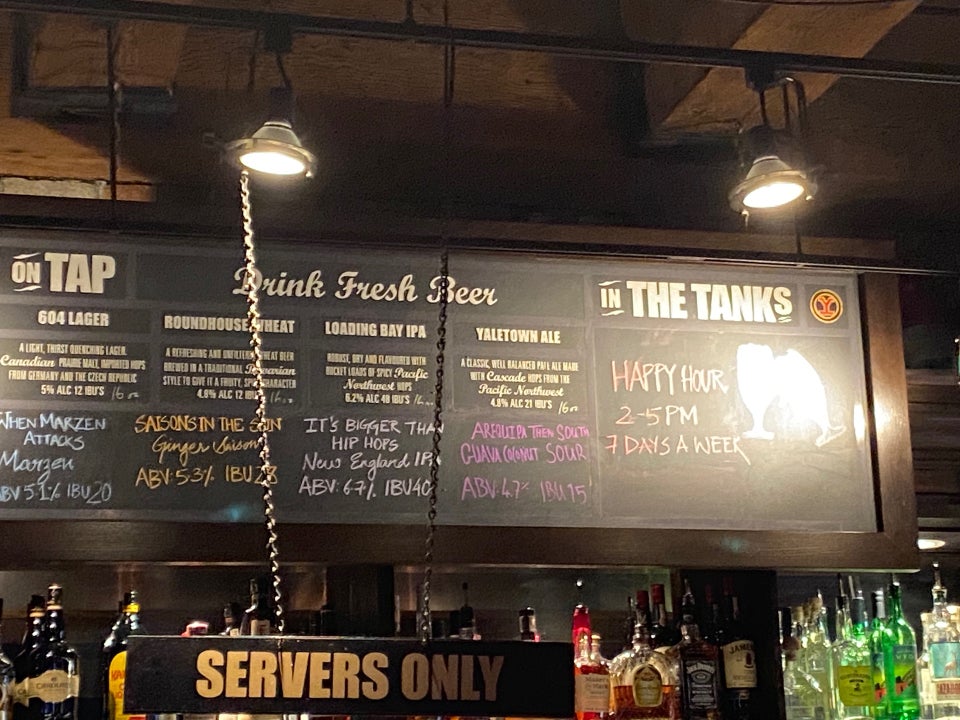 ON TAP
Drink Fresh Beer
IN THE TANKS
604 LAGER
A LIGHT, THIRST QUENCHING LAGER.
Canadian PRAIRIE MALT, IMPORTED HOPS
FROM GERMANY AND THE CZECH REPUBLIC
5% ALC 12 IBU'S 16oz
ROUNDHOUSE WHEAT
A REFRESHING AND UNFILTERED WHEAT BEER
BREWED IN A TRADITIONAL Bavarian
STYLE TO GIVE IT A FRUITY, SPICY CHARACTER
4.8% ALC 12 IBU'S 16oz
LOADING BAY IPA
ROBUST, DRY AND FLAVOURED WITH
BUCKET LOADS OF SPICY Pacific
Northwest HOPS
6.2% ALC 48 IBU'S
YALETOWN ALE
A CLASSIC, WELL BALANCED PALE ALE MADE
WITH Cascade HOPS FROM THE
Pacific Northwest
4.8% ALC 21 IBU'S 16oz
WHEN MARZEN
ATTACKS
Marzen
ABV 5.1% IBU 20
SAISONS IN THE SUN
Ginger Saison
ABV: 5.3% IBU 28
IT'S BIGGER THAN
HIP HOPS
New England IPA
ABV: 6.7% IBU 40
AREQUIPA THEN SOUTH
GUAVA COCONUT SOUR
ABV: 4.7% IBU 15
HAPPY HOUR
2-5 PM
7 DAYS A WEEK
SERVERS ONLY
JAMESON